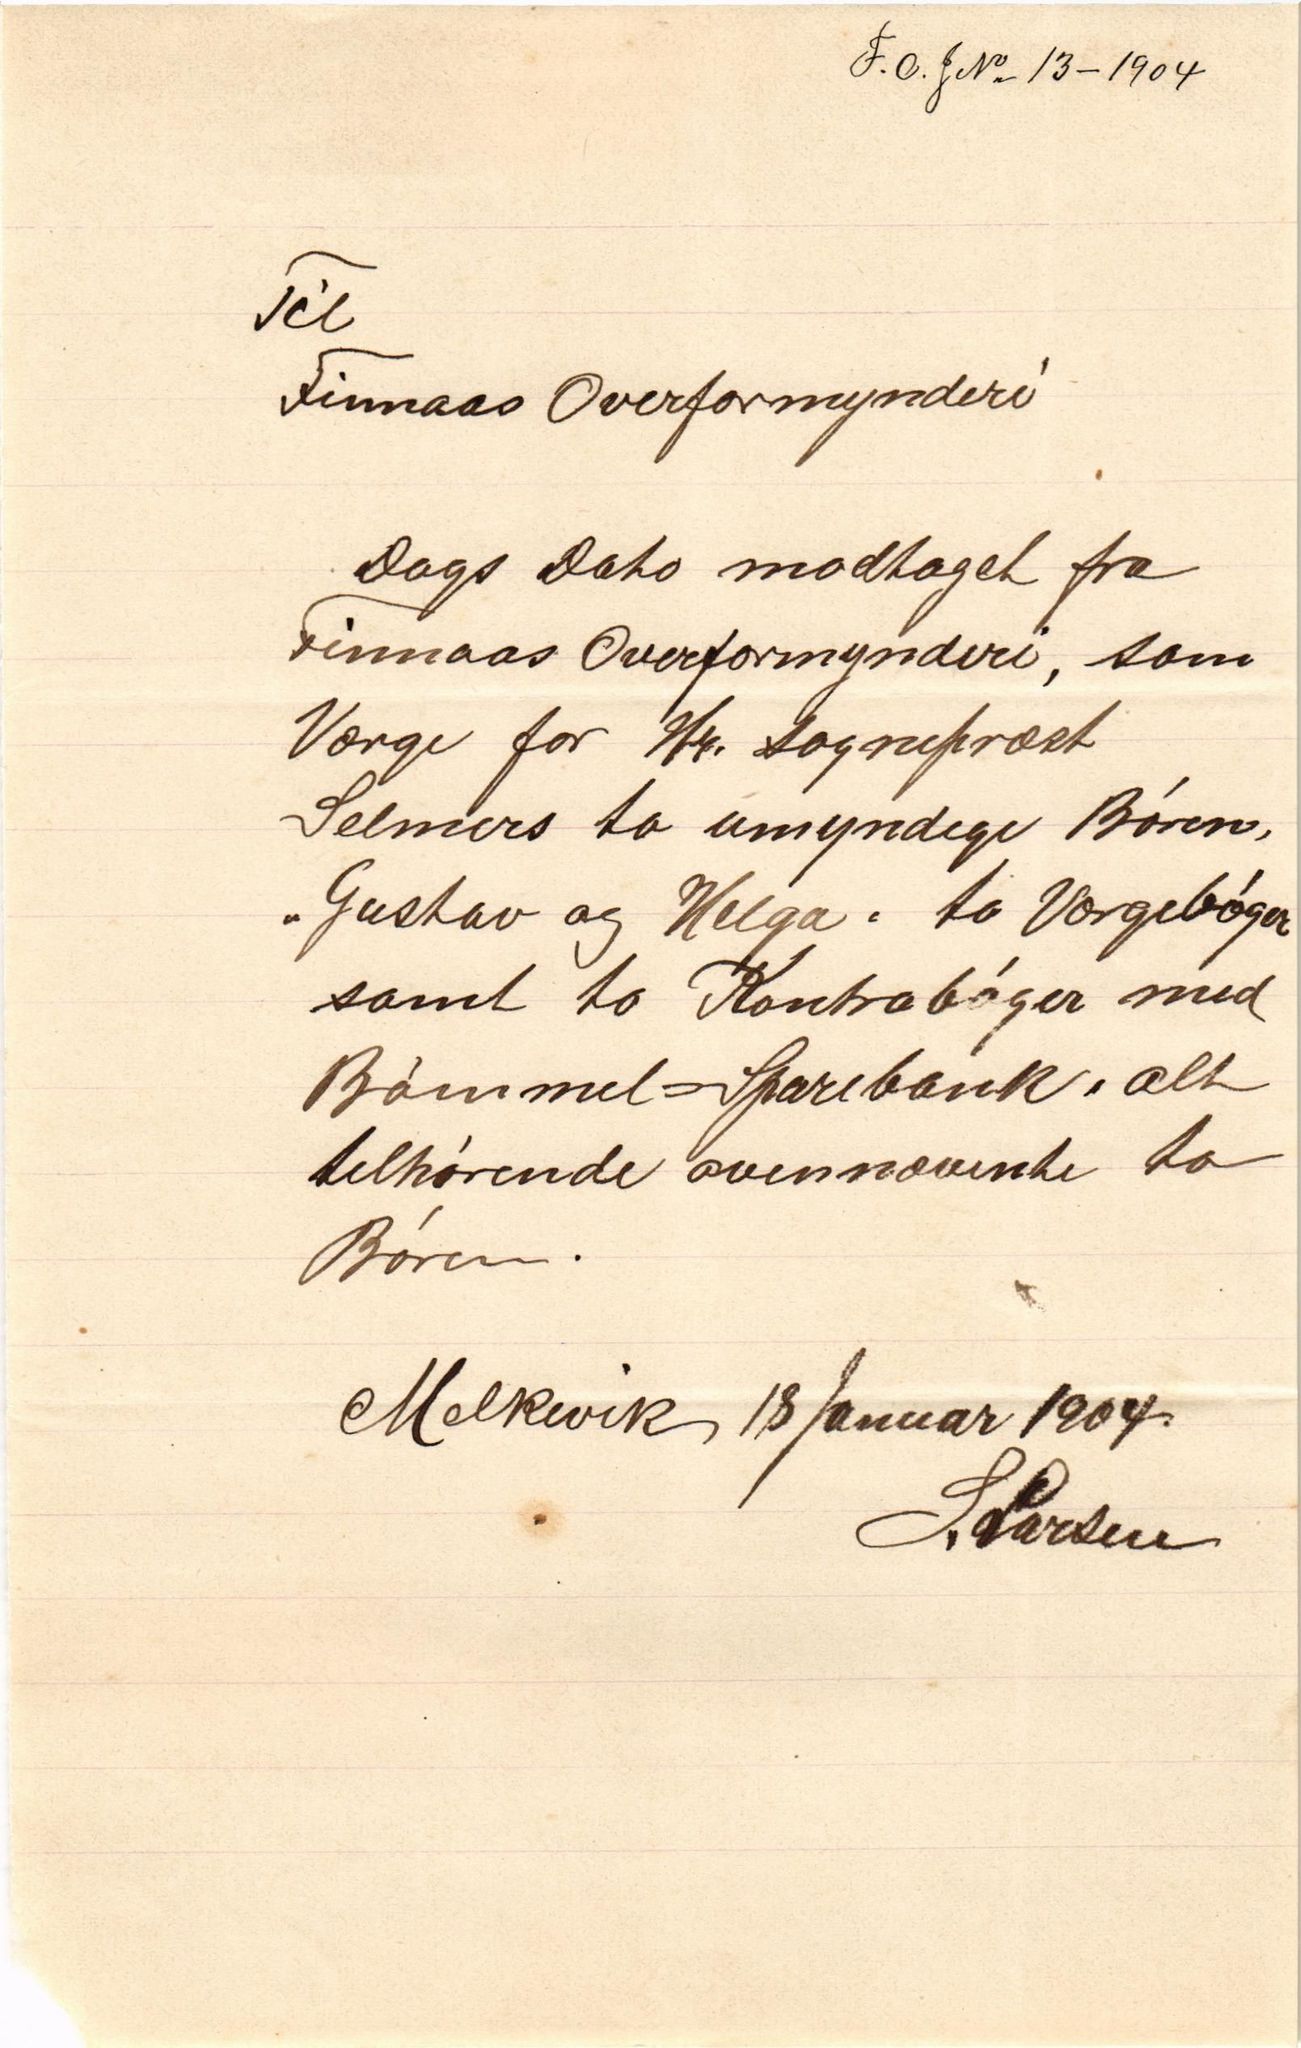 F. O. J No 13 - 1904
Til
Finnaas Overformynderi
Dags Dato modtaget fra
Finnaas Overformynderi, som
Værge for Hr. Sognepræst
Selmers to umyndige Bóren,
"Gustav og Helga" to Værgebóger
samt to Kontrabóger med
Bómmel=Sparebank, alt
tilhórende ovennævnte to
Bóren.
Melkevik, 18 Januar 1904.
S. Larsen